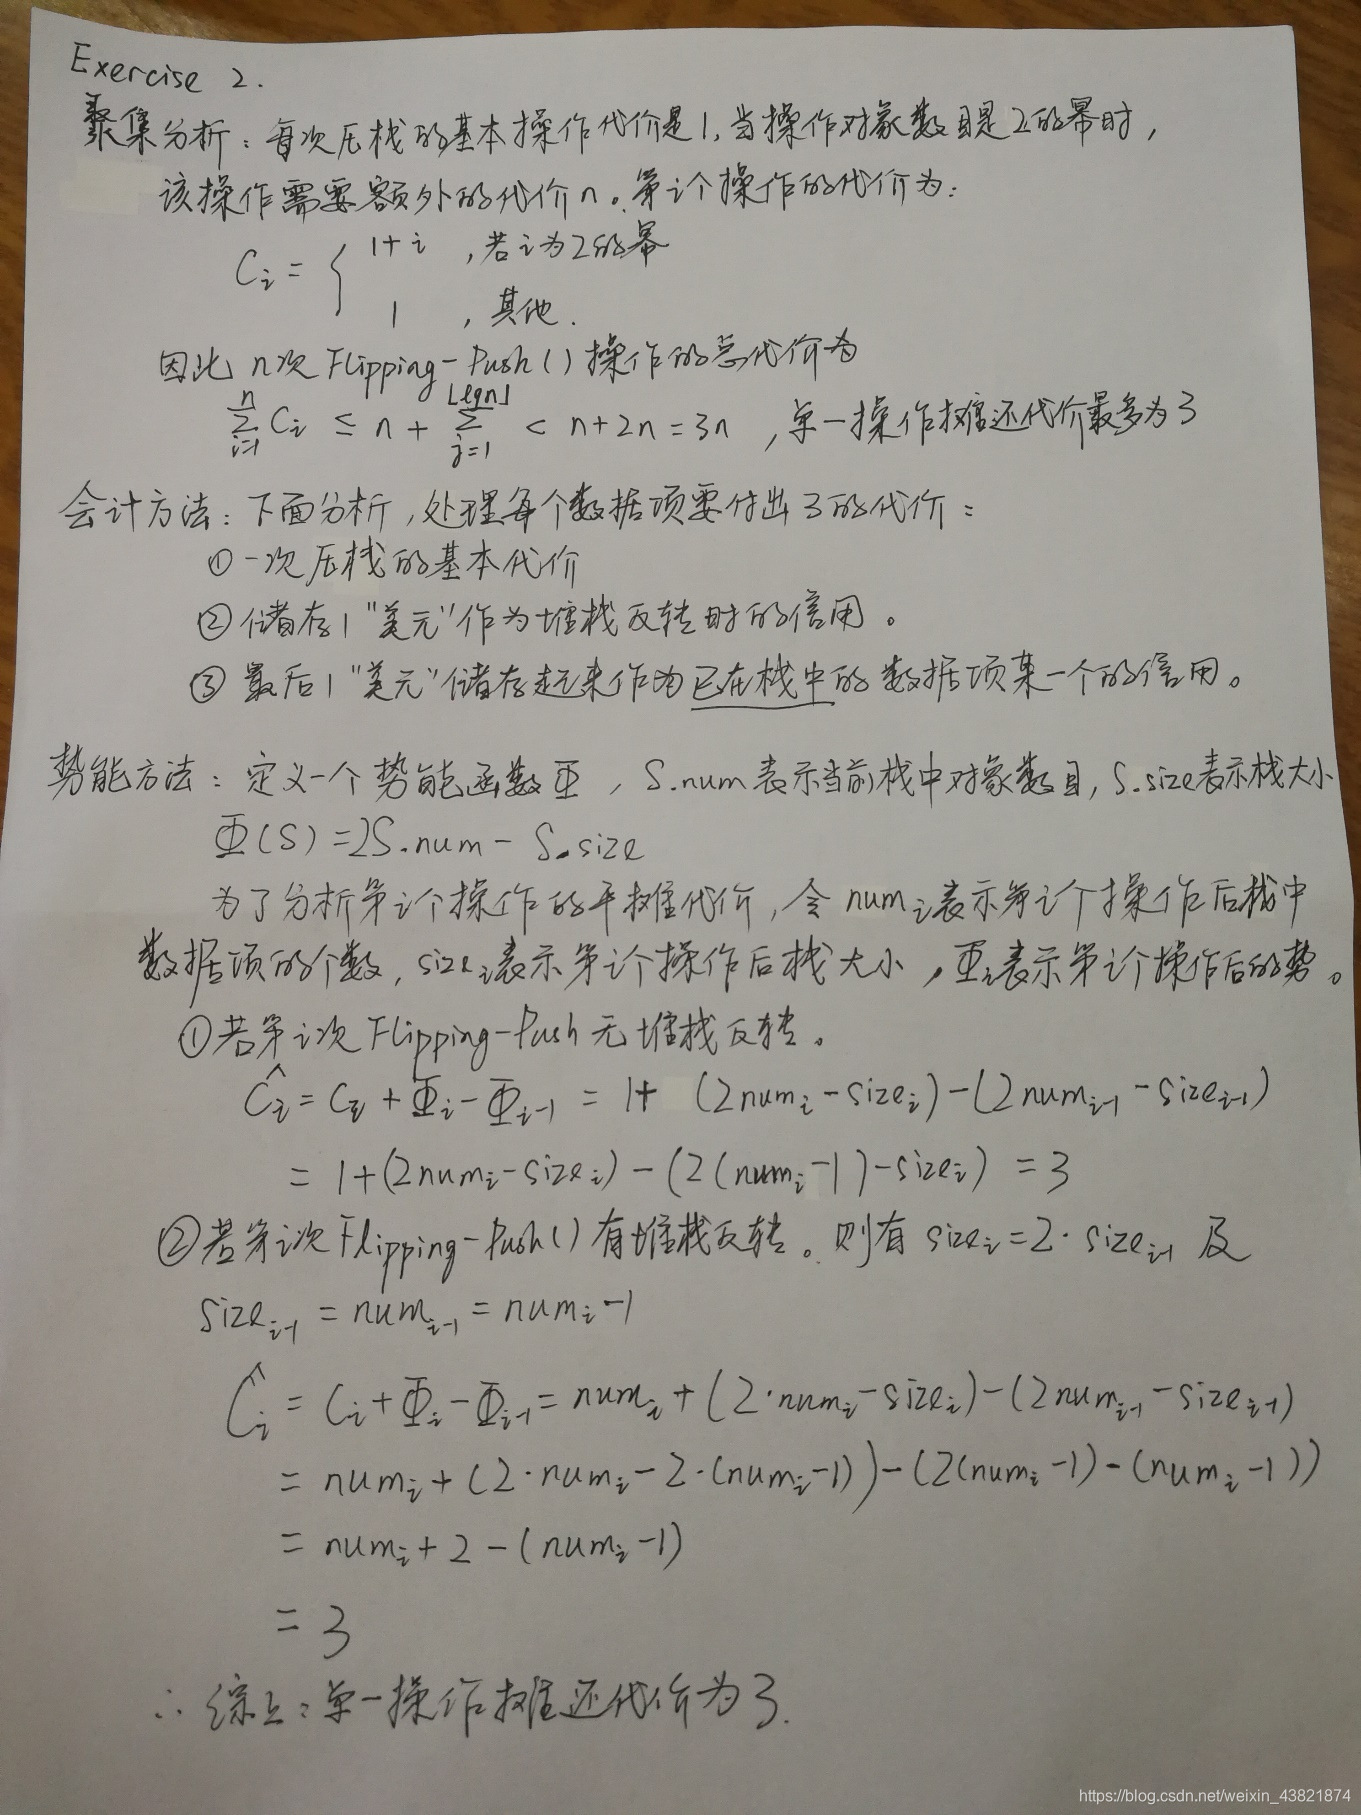 Exercise 2.
聚集分析：每次压栈的基本操作代价是1,当操作对象数目是2的幂时,
该操作需要额外的代价n。第i个操作的代价为:
Cᵢ = { 1+i ,若i为2的幂
1 ,其他.
因此 n次Flipping-Push()操作的总代价为
∑ᵢ₌₁ⁿ Cᵢ ≤ n + ∑ⱼ₌₁^⌊lgn⌋ < n+2n=3n ,单一操作摊还代价最多为3
会计方法：下面分析,处理每个数据项要付出3的代价：
①一次压栈的基本代价
②储存1"美元"作为堆栈反转时的信用。
③最后1"美元"储存起来作为已在栈中的数据项某一个的信用。
势能方法：定义一个势能函数Φ, S.num表示当前栈中对象数目, S.size表示栈大小
Φ(S)=2S.num- S.size
为了分析第i个操作的平摊代价,令numᵢ表示第i个操作后栈中
数据项的个数, sizeᵢ表示第i个操作后栈大小,Φᵢ表示第i个操作后的势。
①若第i次Flipping-Push无堆栈反转。
Ĉᵢ = Cᵢ + Φᵢ - Φᵢ₋₁ = 1+ (2numᵢ-sizeᵢ)-(2numᵢ₋₁-sizeᵢ₋₁)
= 1+(2numᵢ-sizeᵢ)-(2(numᵢ-1)-sizeᵢ) =3
②若第i次Flipping-Push()有堆栈反转。则有 sizeᵢ=2·sizeᵢ₋₁ 及
sizeᵢ₋₁ = numᵢ₋₁ = numᵢ-1
Ĉᵢ = Cᵢ+Φᵢ-Φᵢ₋₁= numᵢ+(2·numᵢ-sizeᵢ)-(2numᵢ₋₁-sizeᵢ₋₁)
= numᵢ+(2·numᵢ-2·(numᵢ-1))-(2(numᵢ-1)-(numᵢ-1))
= numᵢ+2-(numᵢ-1)
= 3
∴ 综上:单一操作摊还代价为3.
https://blog.csdn.net/weixin_43821874